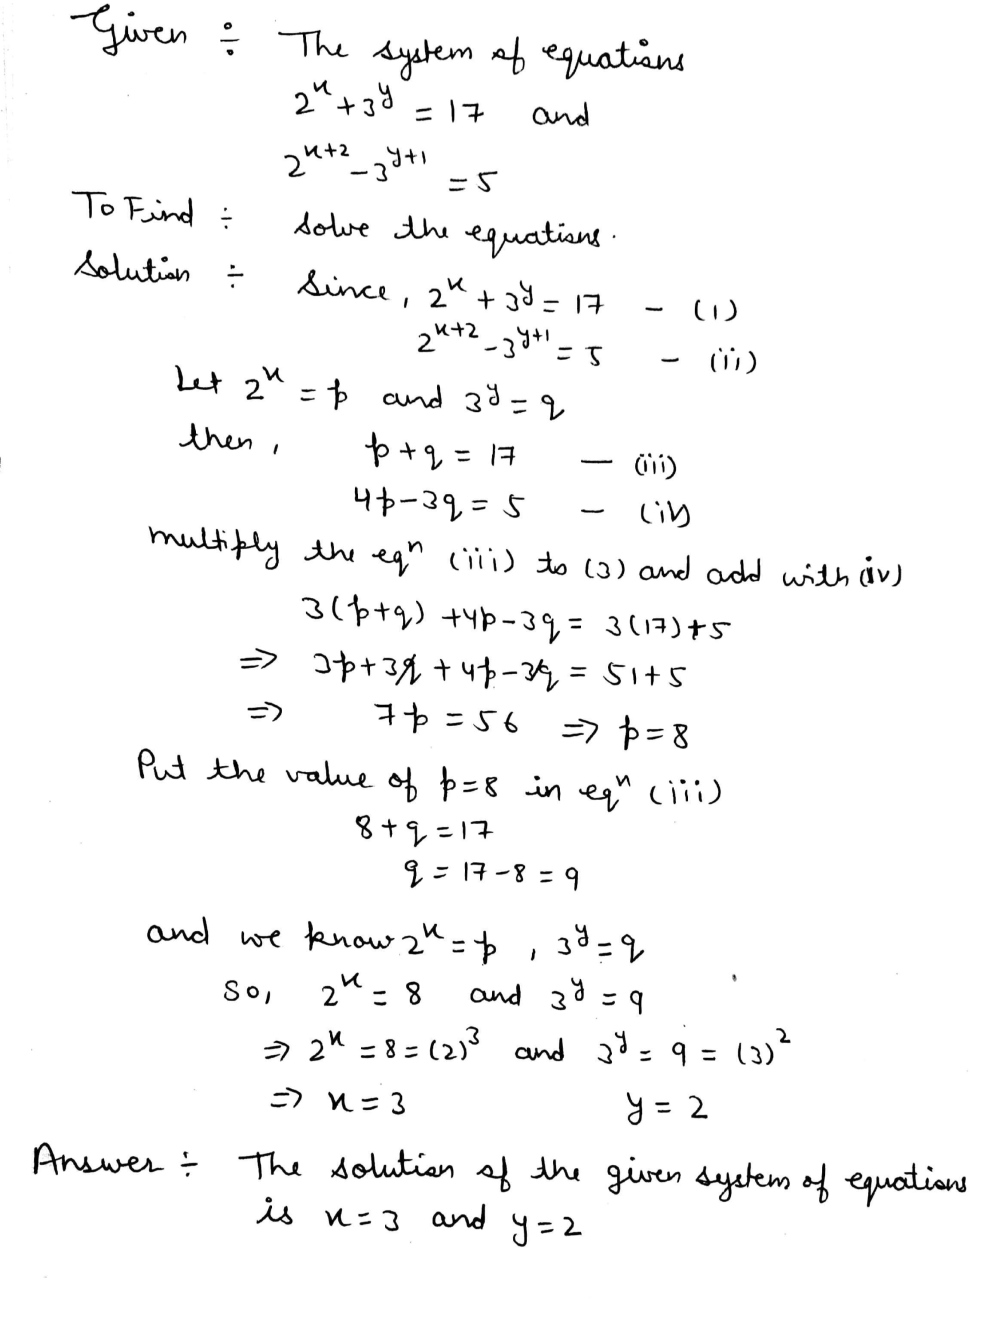 Given ÷ The system of equations
2^x + 3^y = 17 and
2^{x+2} - 3^{y+1} = 5
To Find ÷ Solve the equations.
Solution ÷ Since, 2^x + 3^y = 17 - (i)
2^{x+2} - 3^{y+1} = 5 - (ii)
Let 2^x = p and 3^y = q
then, p + q = 17 — (iii)
4p - 3q = 5 - (iv)
multiply the eqⁿ (iii) to (3) and add with (iv)
3(p+q) + 4p - 3q = 3(17) + 5
⇒ 3p + 3q + 4p - 3q = 51 + 5
⇒ 7p = 56 ⇒ p = 8
Put the value of p = 8 in eqⁿ (iii)
8 + q = 17
q = 17 - 8 = 9
and we know 2^x = p, 3^y = q
So, 2^x = 8 and 3^y = 9
⇒ 2^x = 8 = (2)^3 and 3^y = 9 = (3)^2
⇒ x = 3 y = 2
Answer ÷ The solution of the given system of equations
is x = 3 and y = 2